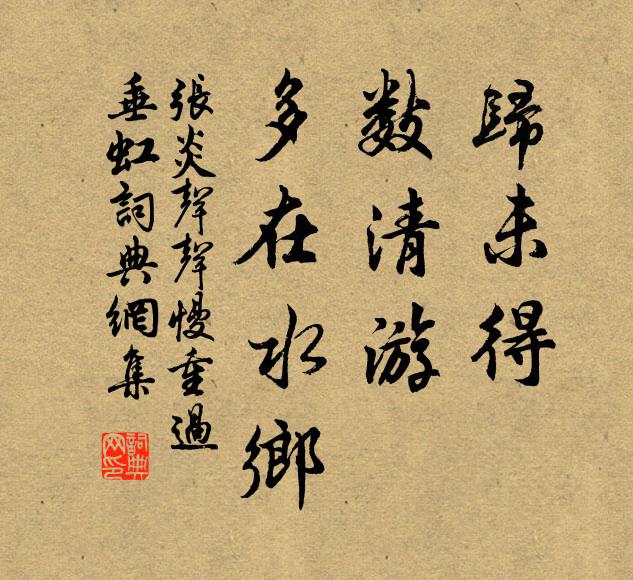 歸未得
數清游
多在水鄉
張炎聲聲慢重過
垂虹詞典網集
詞典網印